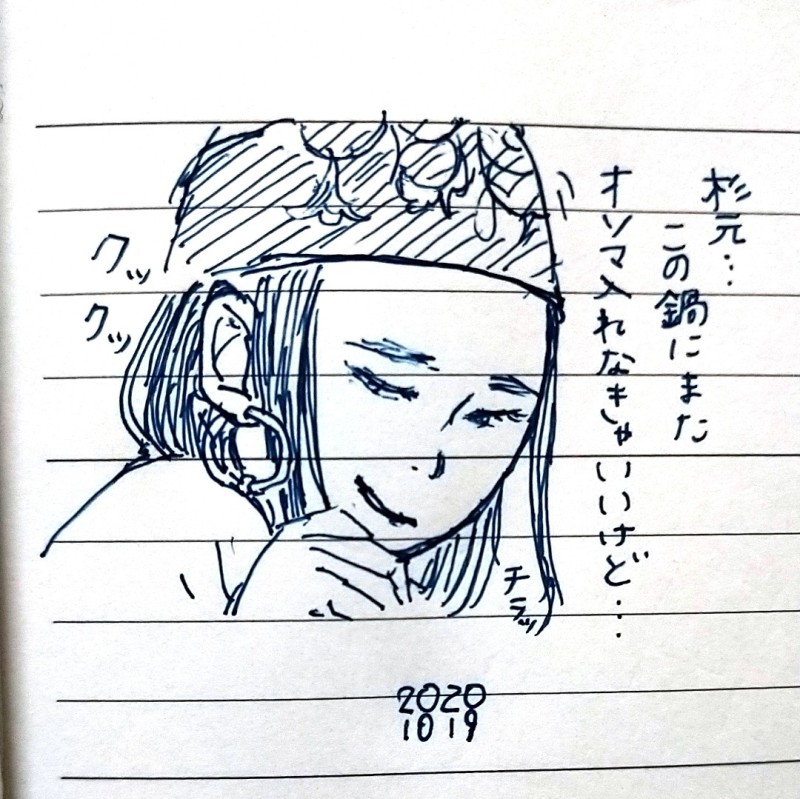 杉元…
この鍋にまた
オソマ入れなきゃいいけど…
クッ
クッ
チラッ
2020
10 19